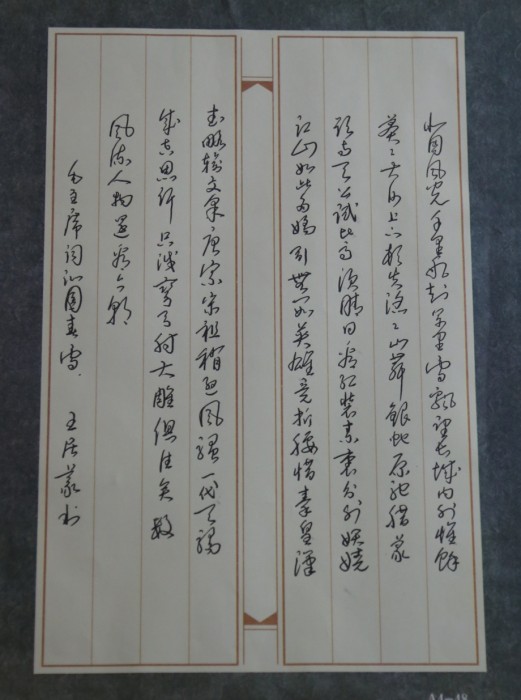 北国风光千里冰封万里雪飘望长城内外惟餘
莽莽大河上下顿失滔滔山舞银蛇原驰腊象
欲与天公试比高须晴日看红装素裹分外妖娆
江山如此多娇引無数英雄竞折腰惜秦皇汉
武略输文采唐宗宋祖稍逊风骚一代天骄
成吉思汗只识弯弓射大雕俱往矣数
风流人物还看今朝
毛主席词沁园春雪 王居 书